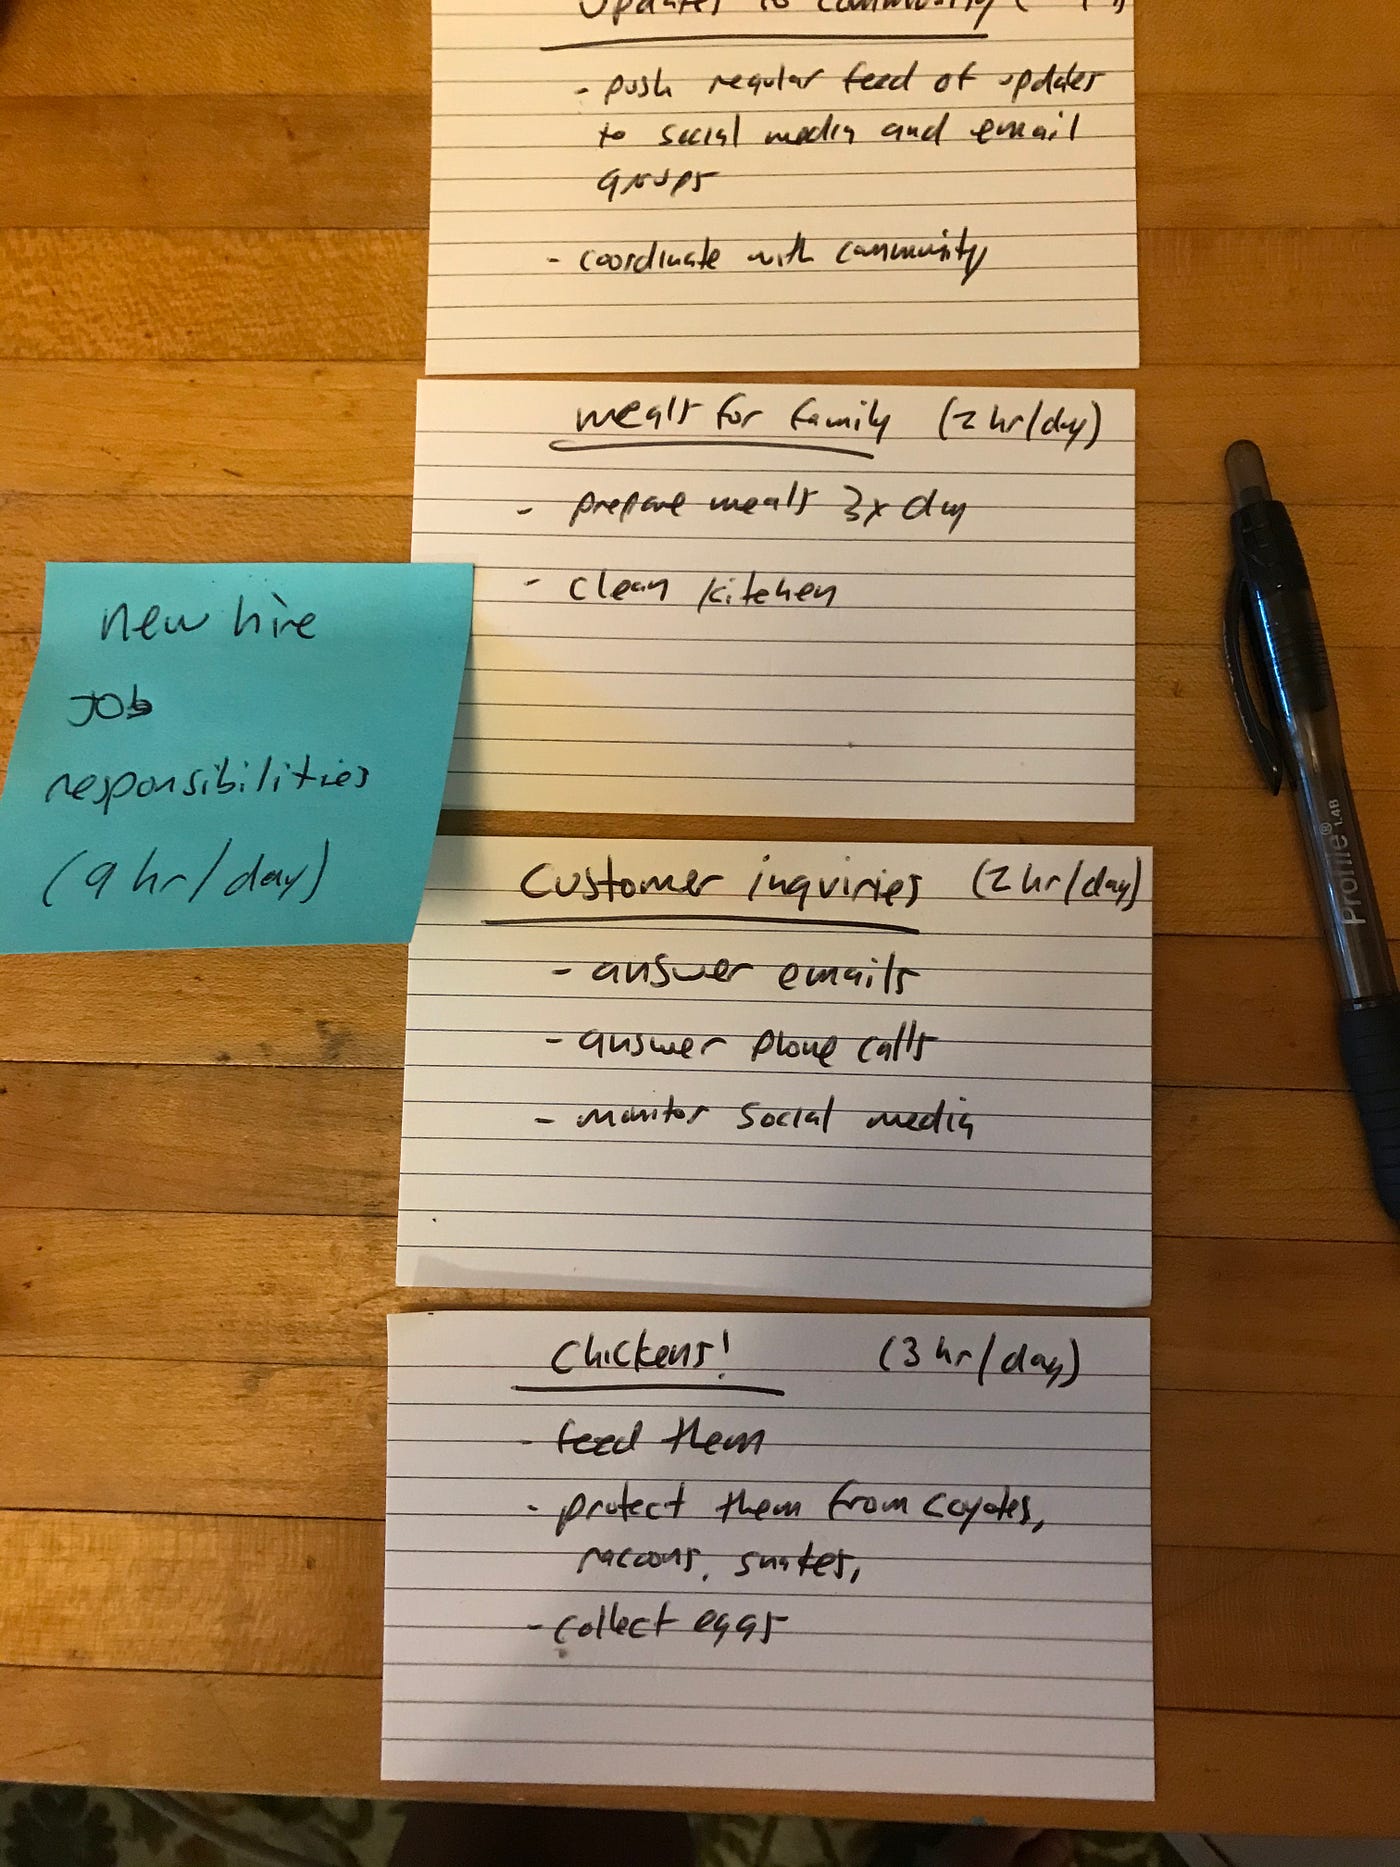 Updates to community (
- push regular feed of updates
to social media and email
groups
- coordinate with community
meals for family (2 hr/day)
- prepare meals 3x day
- clean kitchen
new hire
Job
responsibilities
(9 hr/day)
Customer inquiries (2 hr/day)
- answer emails
- answer phone calls
- monitor social media
Chickens! (3 hr/day)
- feed them
- protect them from coyotes,
raccons, snakes,
- collect eggs
Profile® 1.4B